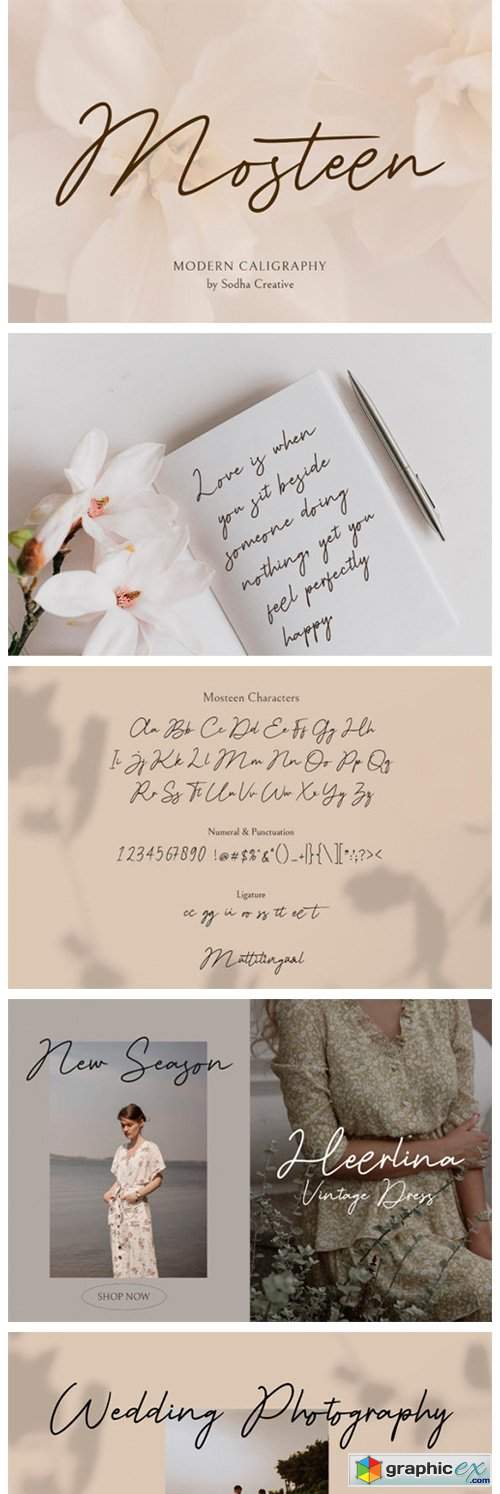 Mosteen
MODERN CALIGRAPHY
by Sodha Creative
Love is when
you sit beside
someone doing
nothing, yet you
feel perfectly
happy.
Mosteen Characters
Aa Bb Cc Dd Ee Ff Gg Hh
Ii Jj Kk Ll Mm Nn Oo Pp Qq
Rr Ss Tt Uu Vv Ww Xx Yy Zz
Numeral & Punctuation
1234567890 !@#$%^&*()_+|}{\][":;?><
Ligature
cc gg ii rr ss tt ee t
Multilingual
New Season
SHOP NOW
Heerlina
Vintage Dress
Wedding Photography
graphicex.com